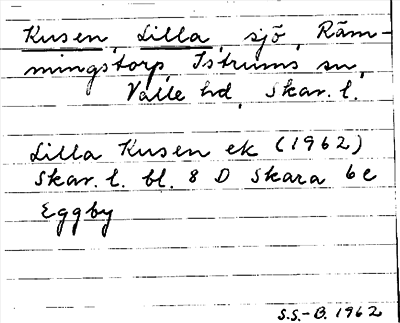 Kusen, Lilla, sjö, Räm-
mingstorp, Istrums sn,
Valle hd, Skar. l.
Lilla Kusen ek (1962)
Skar. l. bl. 8 D Skara 6e
Eggby
S.S.-B. 1962